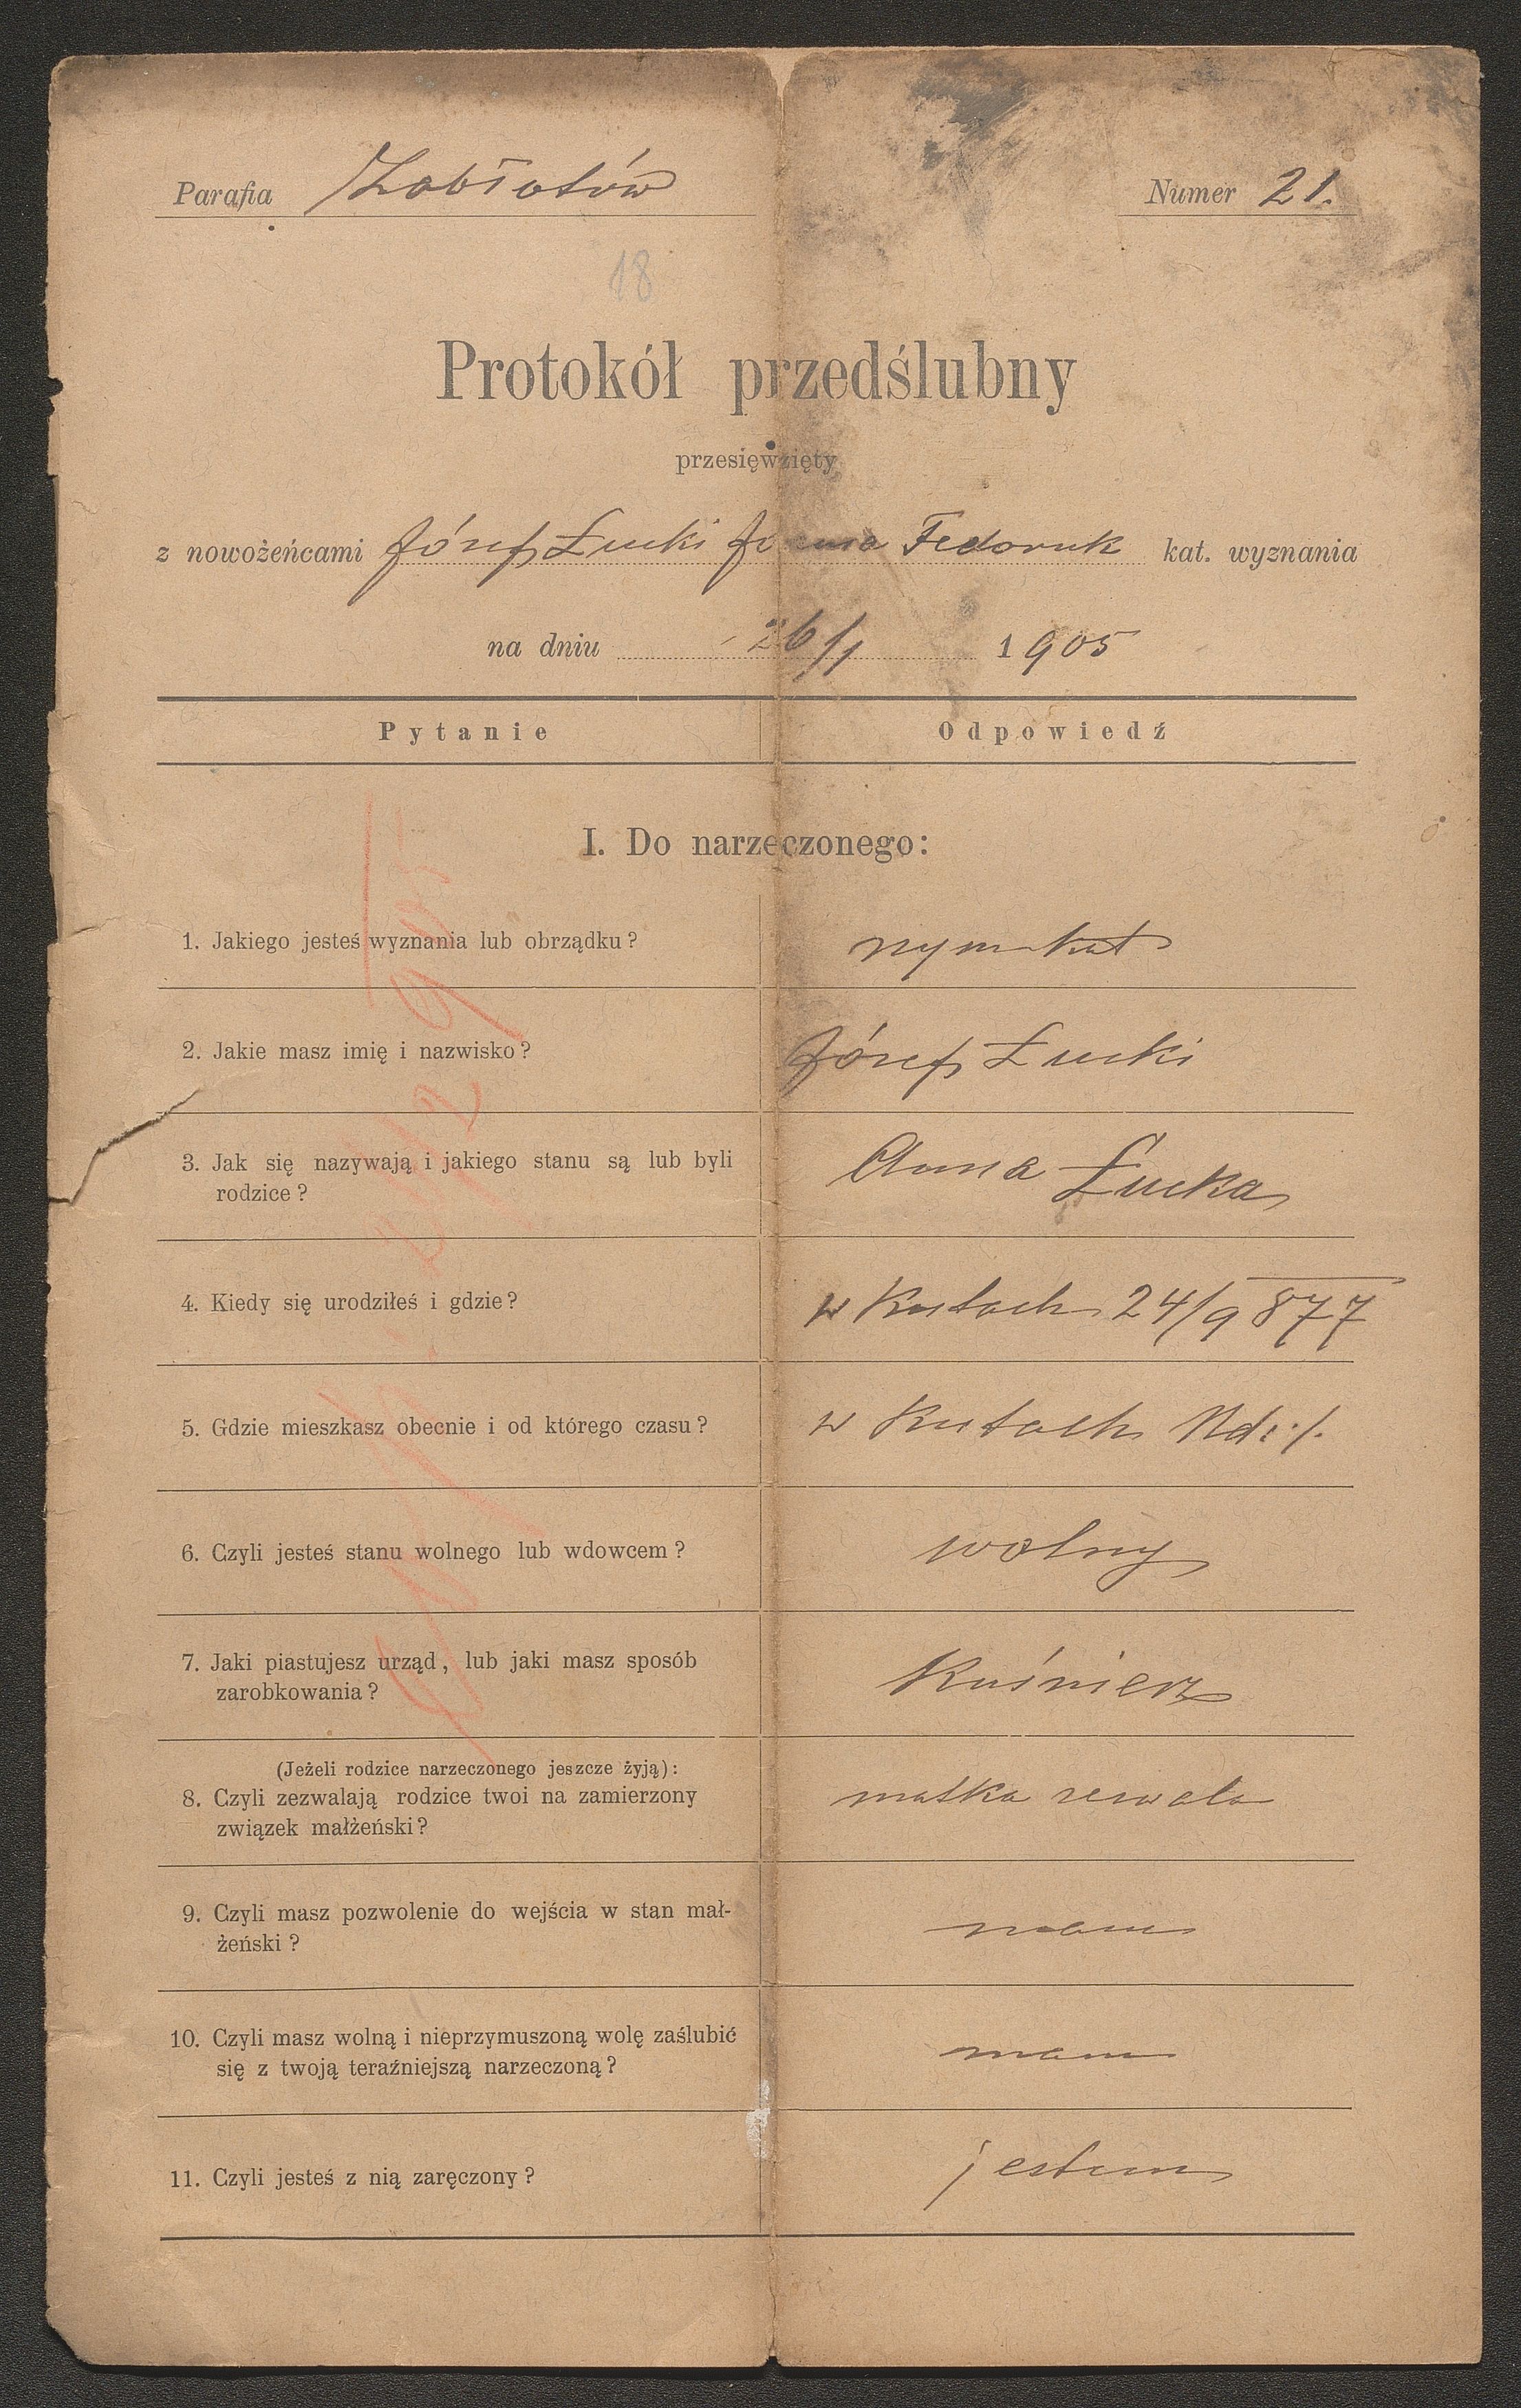 Parafia Zabłotów Numer 21.
18
Protokół przedślubny
przesięwzięty
z nowożeńcami Józef Łucki Fedoruk kat. wyznania
na dniu 26/1 1905
Pytanie Odpowiedź
I. Do narzeczonego:
1. Jakiego jesteś wyznania lub obrządku? rzym kat
2. Jakie masz imię i nazwisko? Józef Łucki
3. Jak się nazywają i jakiego stanu są lub byli Anna Łucka
rodzice?
4. Kiedy się urodziłeś i gdzie? w Kutach 24/9 877
5. Gdzie mieszkasz obecnie i od którego czasu? w Kutach
6. Czyli jesteś stanu wolnego lub wdowcem? wolny
7. Jaki piastujesz urząd, lub jaki masz sposób Kuśnierz
zarobkowania?
(Jeżeli rodzice narzeczonego jeszcze żyją):
8. Czyli zezwalają rodzice twoi na zamierzony matka zezwala
związek małżeński?
9. Czyli masz pozwolenie do wejścia w stan mał-
żeński? mam
10. Czyli masz wolną i nieprzymuszoną wolę zaślubić
się z twoją teraźniejszą narzeczoną? mam
11. Czyli jesteś z nią zaręczony? jestem